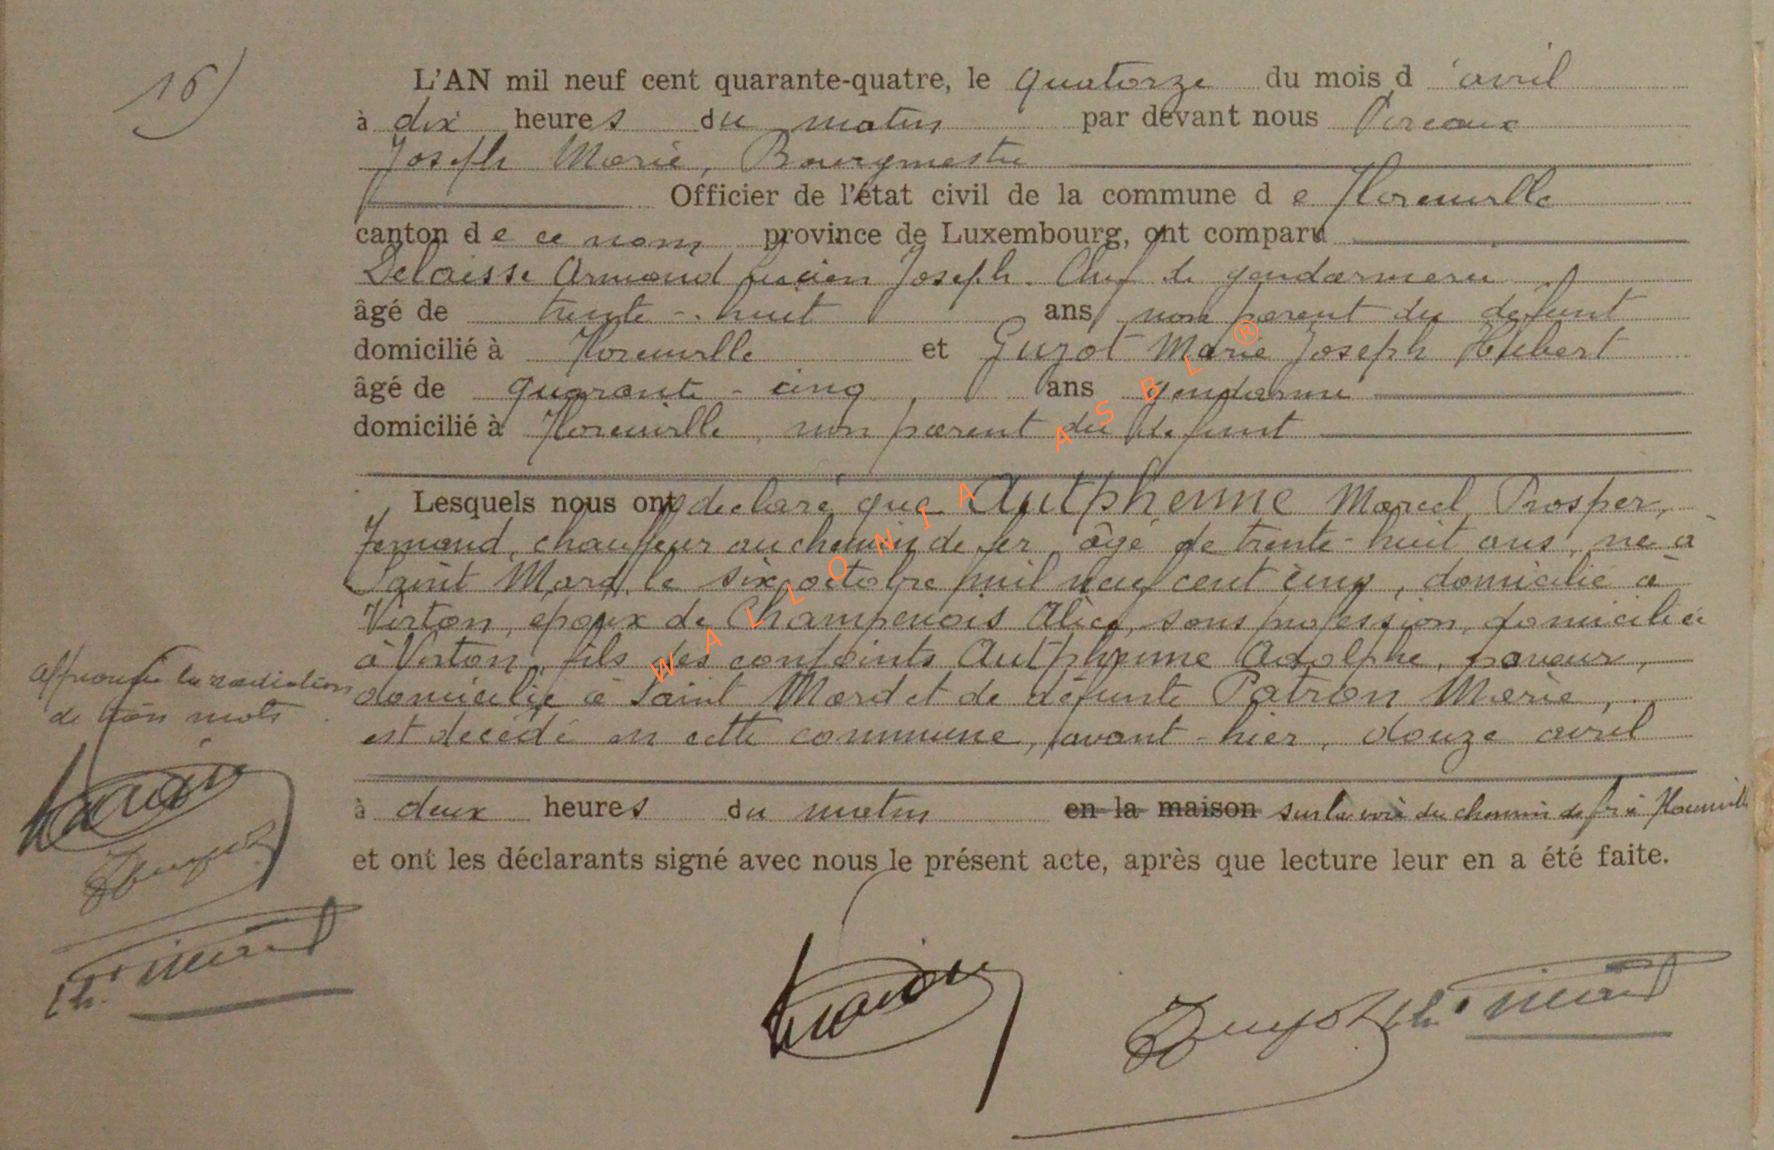 16)
L'AN mil neuf cent quarante-quatre, le quatorze du mois d'avril
à dix heures du matin par devant nous
Joseph Marie, Bourgmestre
Officier de l'état civil de la commune de Florenville
canton de ce nom province de Luxembourg, ont comparu
Delaisse Armand Lucien Joseph. Chef de gendarmerie
âgé de trente-huit ans non parent du défunt
domicilié à Florenville et Guyot Marie Joseph Hubert
âgé de quarante-cinq ans gendarme
domicilié à Florenville, non parent du défunt
Lesquels nous ont déclaré que Autphenne Marcel, Prosper,
Fernand, chauffeur au chemin de fer, âgé de trente-huit ans, né à
Saint Mard, le six octobre mil neuf cent cinq, domicilié à
Virton, époux de Champenois Alice, sans profession, domiciliée
à Virton, fils des conjoints Autphenne Adolphe, paveur,
domicilié à Saint Mard et de défunte Patron Marie,
est décédé en cette commune, avant-hier, douze avril
à deux heures du matin en la maison sur la voie du chemin de fer à Florenville
et ont les déclarants signé avec nous le présent acte, après que lecture leur en a été faite.
la radiation
de trois mots
WALLONIA ASBL ®